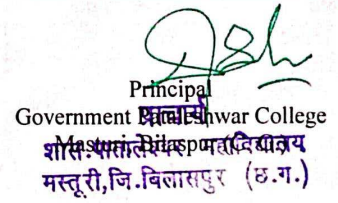 Principal
प्राचार्य
Government Pataleshwar College
Masturi, Bilaspur
शास. पातालेश्वर महाविद्यालय
मस्तूरी, जि.बिलासपुर (छ.ग.)